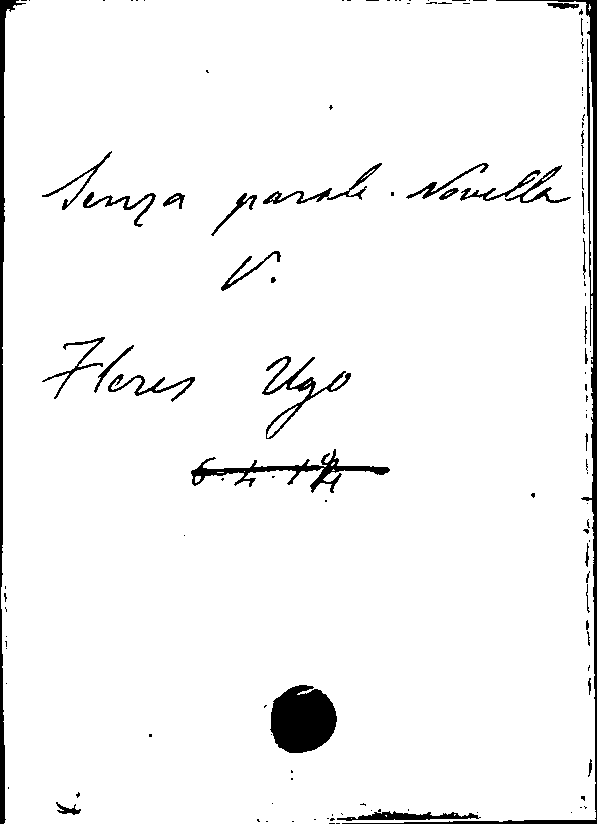 Senza parole. Novella
V.
Flores Ugo